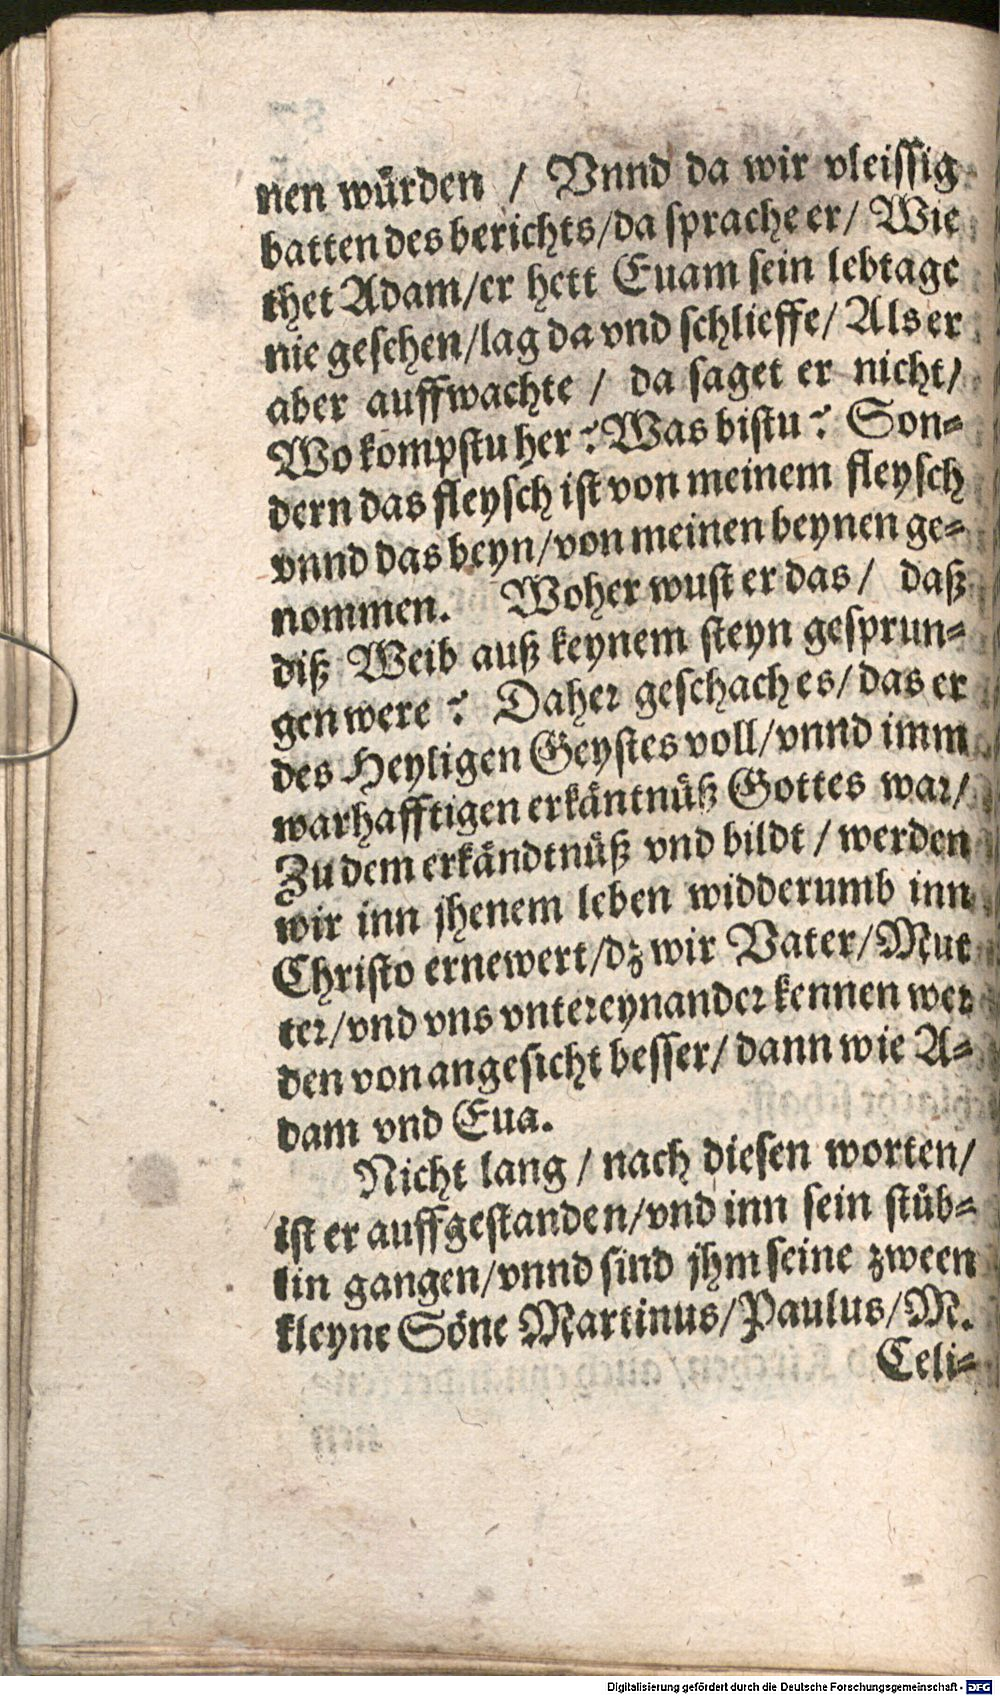 nen würden / Vnnd da wir vleissig
batten des berichts/da sprache er/ Wie
thet Adam/er hett Euam sein lebtage
nie gesehen/lag da vnd schlieffe/ Als er
aber auffwachte / da saget er nicht/
Wo kompstu her? Was bistu? Son=
dern das fleysch ist von meinem fleysch
vnnd das beyn/von meinen beynen ge=
nommen. Woher wust er das / daß
diß Weib auß keynem steyn gesprun=
gen were? Daher geschach es/das er
des Heyligen Geystes voll/vnnd imm
warhafftigen erkäntnüß Gottes war/
Zu dem erkändtnüß vnd bildt / werden
wir inn jhenem leben widderumb inn
Christo ernewert/dz wir Vater/Mut
ter/vnd vns vntereynander kennen wer
den von angesicht besser/ dann wie A=
dam vnd Eua.
Nicht lang / nach diesen worten/
ist er auffgestanden/vnd inn sein stüb=
lin gangen/vnnd sind jhm seine zween
kleyne Söne Martinus/Paulus/M.
Celi=
Digitalisierung gefördert durch die Deutsche Forschungsgemeinschaft - DFG